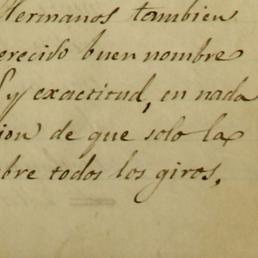 Hermanos tambien
erecido buen nombre
y exactitud, en nada
ion de que solo la
bre todos los giros,